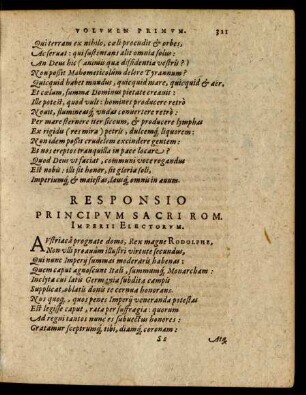 VOLVMEN PRIMVM. 321
Qui terram ex nihilo, cœli procudit & orbes,
Ac seruat: qui sustentans alit omnia solus:
An Deus hic (animis quæ diffidentia vestris?)
Non possit Mahometicolûm delere Tyrannum?
Quicquid habet mundus, quicquid mare, quicquid & aër,
Et cœlum, summa Dominus pietate creauit:
Ille potest, quod vult: homines producere retrò
Nouit, fluminaq́; vndas conuertere retrò:
Per mare sternere iter siccum, & producere lymphas
Ex rigida (res mira) petris, dulcemq́; liquorem:
Non idem possit crudelem excindere gentem:
Et nos ereptos tranquilla in pace locare?
Quod Deus vt faciat, communi voce rogandus
Est nobis: illi sit honor, sit gloria soli,
Imperiumq́; & maiestas, lausq́; omne in æuum.
RESPONSIO
PRINCIPVM SACRI ROM.
IMPERII ELECTORVM.
AVstriacâ prognate domo, Rex magne RODOLPHE,
Non vili proauûm illustri virtute secundus,
Qui nunc Imperij summas moderaris habenas:
Quem caput agnoscunt Itali, summumq́; Monarcham:
Inclyta cui latis Germania subdita campis
Supplicat, oblatis donis te cernua honorans.
Nos quoq́;, quos penes Imperij veneranda potestas
Est legisse caput, rata per suffragia: quorum
Ad regni tantos nunc es subuectus honores:
Gratamur sceptrumq́; tibi, diamq́; coronam:
Ss Atq́;